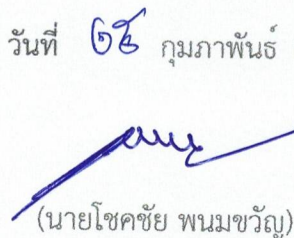 วันที่ ๒๕ กุมภาพันธ์
(นายโชคชัย พนมขวัญ)